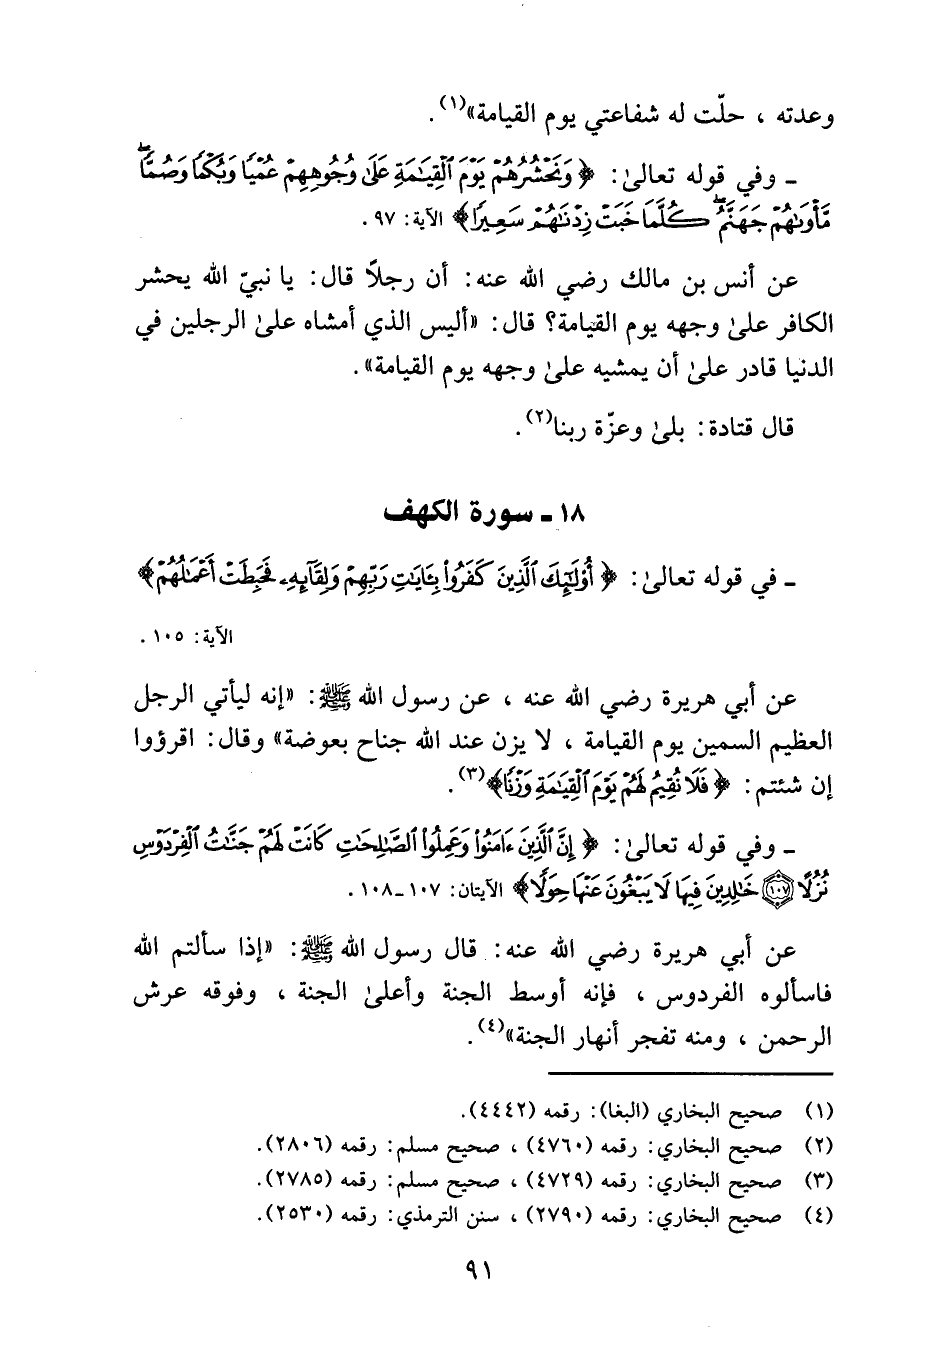 وعدته ، حلّت له شفاعتي يوم القيامة»(١).
ـ وفي قوله تعالىٰ: ﴿ وَنَحْشُرُهُمْ يَوْمَ ٱلْقِيَٰمَةِ عَلَىٰ وُجُوهِهِمْ عُمْيًا وَبُكْمًا وَصُمًّا ۖ
مَّأْوَىٰهُمْ جَهَنَّمُ ۖ كُلَّمَا خَبَتْ زِدْنَٰهُمْ سَعِيرًا ﴾ الآية: ٩٧ .
عن أنس بن مالك رضي الله عنه: أن رجلًا قال: يا نبيّ الله يحشر
الكافر علىٰ وجهه يوم القيامة؟ قال: «أليس الذي أمشاه علىٰ الرجلين في
الدنيا قادر علىٰ أن يمشيه علىٰ وجهه يوم القيامة».
قال قتادة: بلىٰ وعزّة ربنا(٢).
١٨ ـ سورة الكهف
ـ في قوله تعالىٰ: ﴿ أُوْلَٰٓئِكَ ٱلَّذِينَ كَفَرُوا۟ بِـَٔايَٰتِ رَبِّهِمْ وَلِقَآئِهِۦ فَحَبِطَتْ أَعْمَٰلُهُمْ ﴾
الآية: ١٠٥ .
عن أبي هريرة رضي الله عنه ، عن رسول الله ﷺ: «إنه ليأتي الرجل
العظيم السمين يوم القيامة ، لا يزن عند الله جناح بعوضة» وقال: اقرؤوا
إن شئتم: ﴿ فَلَا نُقِيمُ لَهُمْ يَوْمَ ٱلْقِيَٰمَةِ وَزْنًا ﴾(٣).
ـ وفي قوله تعالىٰ: ﴿ إِنَّ ٱلَّذِينَ ءَامَنُوا۟ وَعَمِلُوا۟ ٱلصَّٰلِحَٰتِ كَانَتْ لَهُمْ جَنَّٰتُ ٱلْفِرْدَوْسِ
نُزُلًا ١٠٧ خَٰلِدِينَ فِيهَا لَا يَبْغُونَ عَنْهَا حِوَلًا ﴾ الآيتان: ١٠٧ ـ ١٠٨ .
عن أبي هريرة رضي الله عنه: قال رسول الله ﷺ: «إذا سألتم الله
فاسألوه الفردوس ، فإنه أوسط الجنة وأعلىٰ الجنة ، وفوقه عرش
الرحمن ، ومنه تفجر أنهار الجنة»(٤).
(١) صحيح البخاري (البغا): رقمه (٤٤٤٢).
(٢) صحيح البخاري: رقمه (٤٧٦٠) ، صحيح مسلم: رقمه (٢٨٠٦).
(٣) صحيح البخاري: رقمه (٤٧٢٩) ، صحيح مسلم: رقمه (٢٧٨٥).
(٤) صحيح البخاري: رقمه (٢٧٩٠) ، سنن الترمذي: رقمه (٢٥٣٠).
٩١